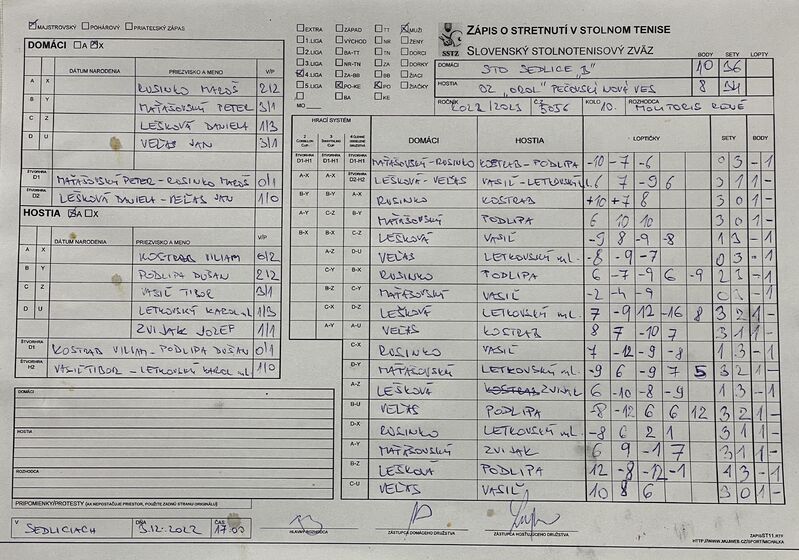 MAJSTROVSKÝ POHÁROVÝ PRIATEĽSKÝ ZÁPAS
DOMÁCI A X
DÁTUM NARODENIA PRIEZVISKO A MENO V/P
A X ROSINKO MAROŠ 2/2
B Y MAŤAŠOVSKÝ PETER 3/1
C Z LEŠKOVÁ DANIELA 1/3
D U VEĽAS JÁN 3/1
ŠTVORHRA D1 MAŤAŠOVSKÝ PETER - ROSINKO MAROŠ 0/1
ŠTVORHRA D2 LEŠKOVÁ DANIELA - VEĽAS JÁN 1/0
HOSTIA A X
DÁTUM NARODENIA PRIEZVISKO A MENO V/P
A X KOSTRAB VILIAM
B Y PODLIPA DUŠAN 2/2
C Z VASIĽ TIBOR 3/1
D U LETKOVSKÝ KAROL ml. 1/3
ZVIJAK JOZEF 1/1
ŠTVORHRA D1 KOSTRAB VILIAM - PODLIPA DUŠAN 0/1
ŠTVORHRA H2 VASIĽ TIBOR - LETKOVSKÝ KAROL ml. 1/0
DOMÁCI
HOSTIA
ROZHODCA
PRIPOMIENKY/PROTESTY (AK NEPOSTAČUJE PRIESTOR, POUŽITE ZADNÚ STRANU ORIGINÁLU)
V SEDLICIACH DŇA 3.12.2022 ČAS 17:00
HLAVNÝ ROZHODCA ZÁSTUPCA DOMÁCEHO DRUŽSTVA ZÁSTUPCA HOSŤUJÚCEHO DRUŽSTVA
EXTRA ZÁPAD TT MUŽI
1.LIGA VÝCHOD NR ŽENY
2.LIGA BA-TT TN DORCI
3.LIGA NR-TN ZA DORKY
4.LIGA ZA-BB BB ŽIACI
5.LIGA PO-KE PO ŽIAČKY
BA KE
MO
SSTZ
ZÁPIS O STRETNUTÍ V STOLNOM TENISE
SLOVENSKÝ STOLNOTENISOVÝ ZVÄZ
BODY SETY LOPTY
DOMÁCI STO SEDLICE „B" 10 36
HOSTIA OZ „OROL" PEČOVSKÁ NOVÁ VES 8 34
ROČNÍK 2022/2023 ČZ 5056 KOLO 10. ROZHODCA MOLITORIS RENÉ
HRACÍ SYSTÉM
DOMÁCI HOSTIA LOPTIČKY SETY BODY
MAŤAŠOVSKÝ - ROSINKO KOSTRAB - PODLIPA -10 -7 -6 0 3 - 1
LEŠKOVÁ - VEĽAS VASIĽ - LETKOVSKÝ 6 7 -9 6 3 1 1 -
A-X B-Y A-X ROSINKO KOSTRAB +10 +7 8 3 0 1 -
A-Y C-Z B-Y MAŤAŠOVSKÝ PODLIPA 6 10 10 3 0 1 -
B-X B-X C-Z LEŠKOVÁ VASIĽ -9 8 -9 -8 1 3 - 1
A-Z D-U VEĽAS LETKOVSKÝ ml. -8 -9 -7 0 3 - 1
C-Y B-X ROSINKO PODLIPA 6 -7 -9 6 -9 2 3 - 1
B-Z C-Y MAŤAŠOVSKÝ VASIĽ -2 -4 -9 0 3 - 1
C-X D-Z LEŠKOVÁ LETKOVSKÝ ml. 7 -9 12 -16 8 3 2 1 -
A-Y A-U VEĽAS KOSTRAB 8 7 -10 7 3 1 1 -
C-X ROSINKO VASIĽ 7 -12 -9 -8 1 3 - 1
D-Y MAŤAŠOVSKÝ LETKOVSKÝ ml. -9 6 -9 7 5 3 2 1 -
A-Z LEŠKOVÁ ZVIJAK 6 -10 -8 -9 1 3 - 1
B-U VEĽAS PODLIPA -8 -12 6 6 12 3 2 1 -
D-X ROSINKO LETKOVSKÝ ml. -8 6 2 1 3 1 1 -
A-Y MAŤAŠOVSKÝ ZVIJAK 6 9 -1 7 3 1 1 -
B-Z LEŠKOVÁ PODLIPA 12 -8 -12 -1 1 3 - 1
C-U VEĽAS VASIĽ 10 8 6 3 0 1 -
ZAPISST11.RTF
HTTP://WWW.MUJWEB.CZ/SPORT/MICHALKA